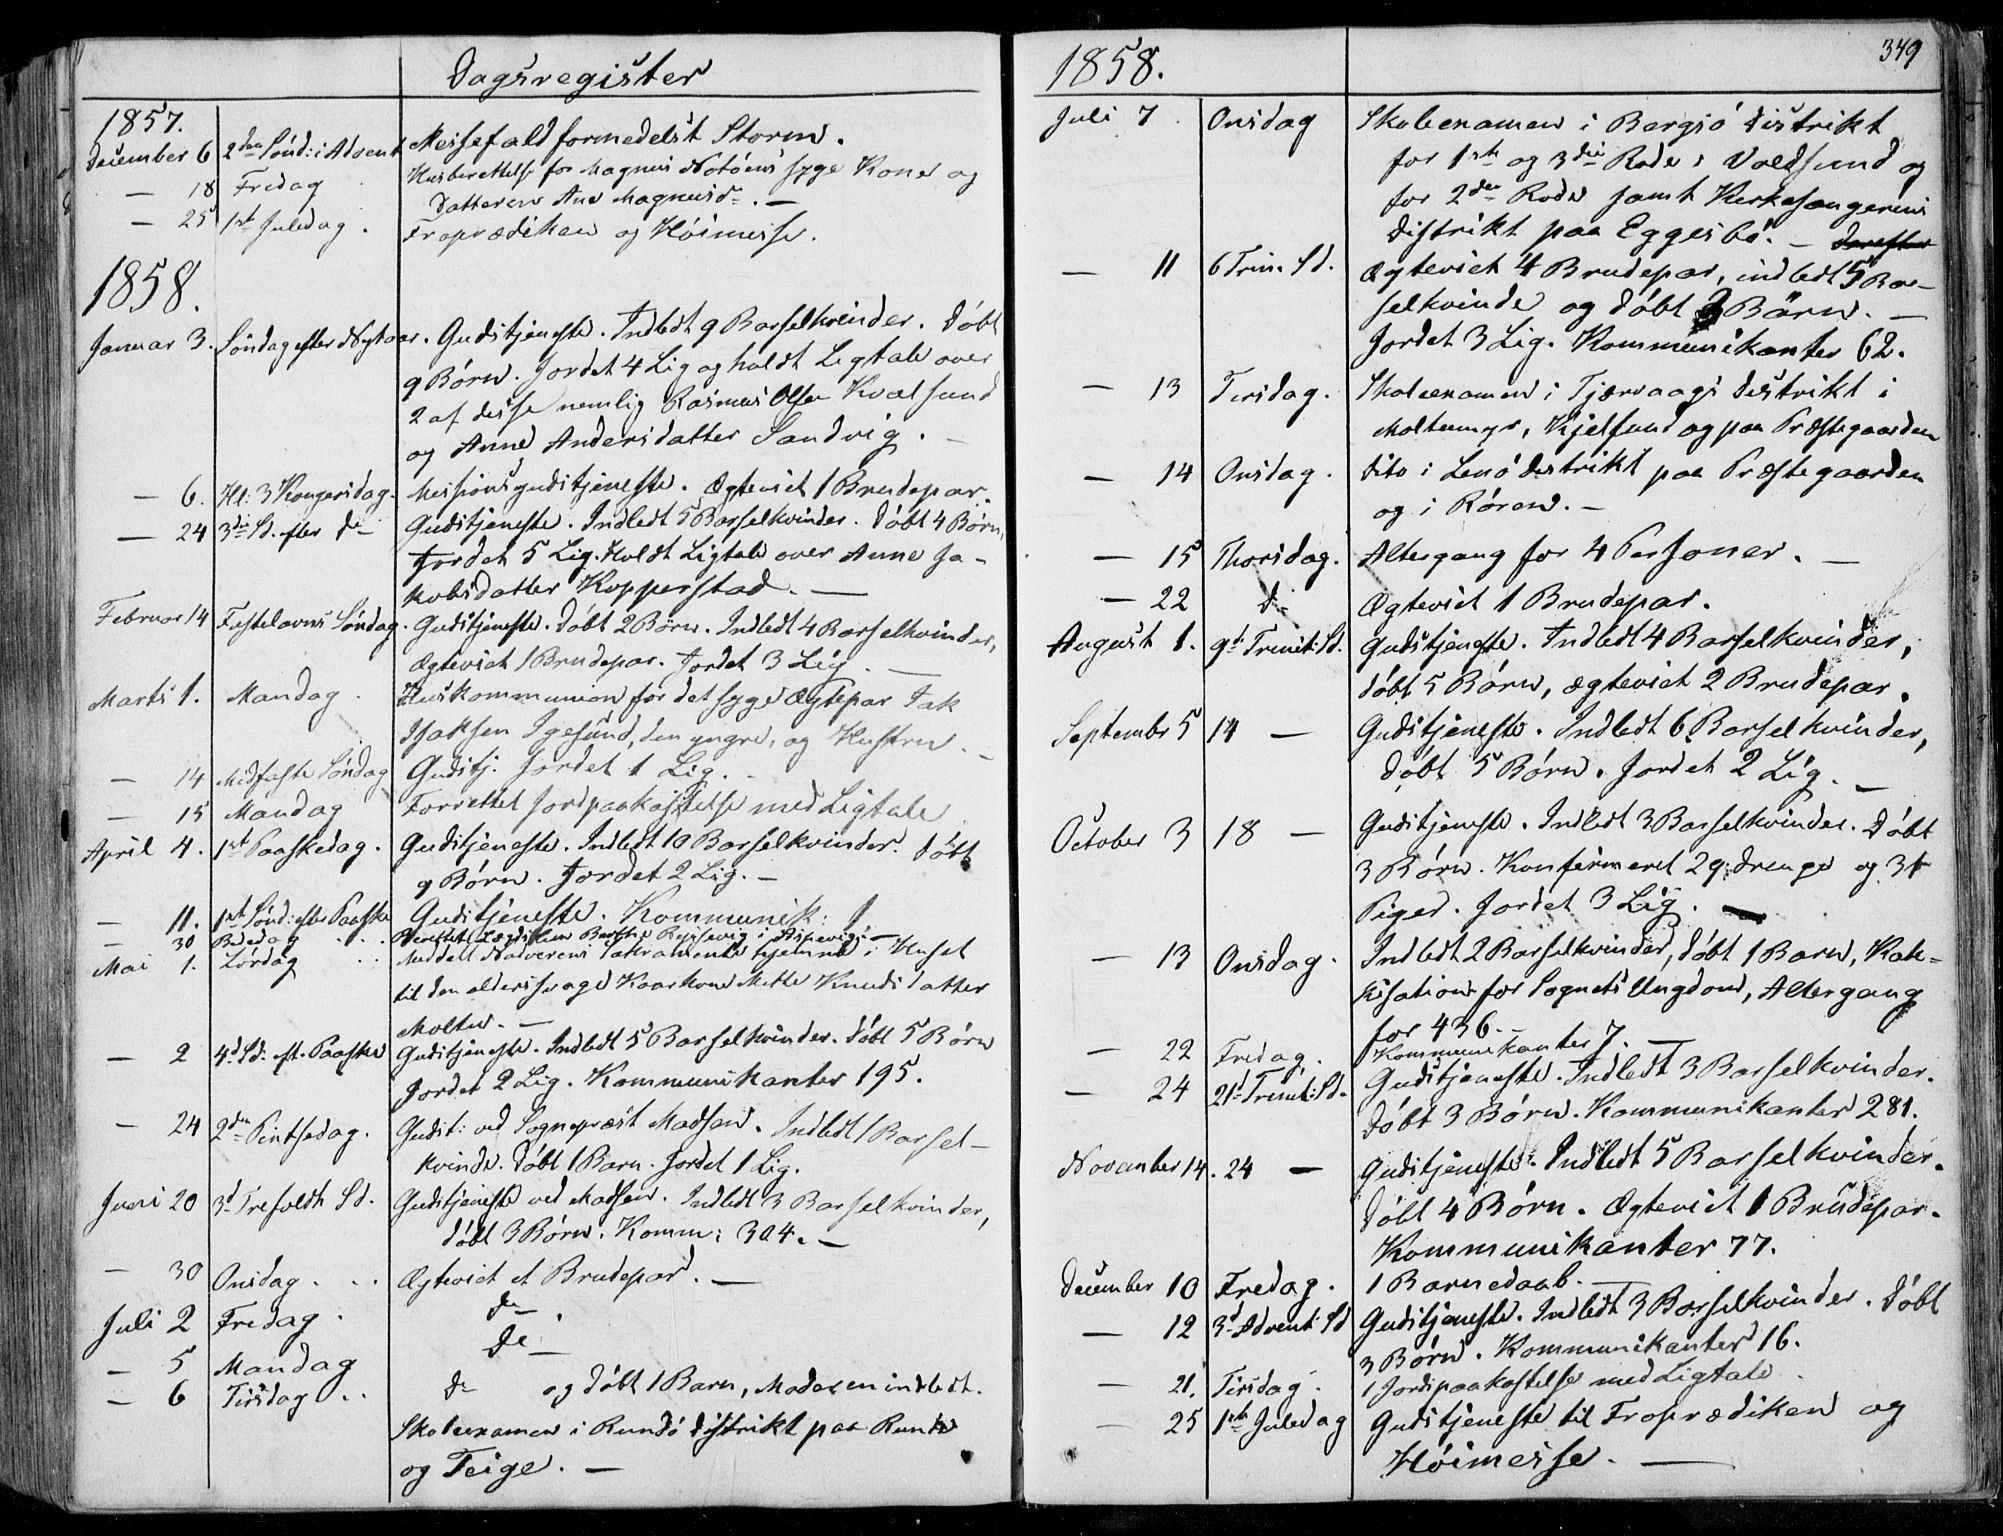 Dagsregister
1857.
December 6 2den Sönd: i Advent Messefald formedelst Storm.
— 18 Fredag Husberettelse for Magnus Notöens syge Kone og
Datteren Ane Magnusd. —
— 25 1ste Juledag. Froprædiken og Höimesse.
1858.
Januar 3. Söndag efter Nytaar. Gudstjeneste. Indledt 9 Barselkvinder. Döbt
9 Börn. Jordet 4 Lig og holdt Ligtale over
2 af disse nemlig Rasmus Olsen Kvalsund
og Anne Andersdatter Sandvig. —
— 6. Hl: 3 Kongersdag. Missionsgudstjeneste. Ægteviet 1 Brudepar.
— 24 3die Sd. efter do Gudstjeneste. Indledt 5 Barselkvinder. Döbt 4 Börn,
Jordet 5 Lig. Holdt Ligtale over Anne Ja-
kobsdatter Kopperstad. —
Februar 14 Fastelavns Söndag. Gudstjeneste. Döbt 2 Börn. Indledt 4 Barselkvinder,
Ægteviet 1 Brudepar. Jordet 3 Lig. —
Marts 1. Mandag. Huskommunion for det syge Ægtepar Isak
Isaksen Igesund, den yngre, og Hustru. —
— 14 Midfaste Söndag Gudstj. Jordet 1 Lig. —
— 15 Mandag Forrettet Jordpaakastelse med Ligtale
April 4. 1ste Paaskedag. Gudstjeneste. Indledt 10 Barselkvinder. Döbt
9 Börn. Jordet 2 Lig. —
— 11. 1ste Sönd: efter Paaske Gudstjeneste. Kommunik:
— 30 Bededag . . Berettet
Mai 1. Lördag . . Meddelt Nadverens Sakramente hjemme i Huset
til den alderssvage Kaarkone Mette Knudsdatter
Moltu. —
— 2 4de Sd: eft. Paaske Gudstjeneste. Indledt 5 Barselkvinder. Döbt 5 Börn
Jordet 2 Lig. Kommunikanter 195.
— 24 2den Pintsedag. Gudst: ved Sognepræst Madsen. Indledt 1 Barsel-
kvinde. Döbt 1 Barn. Jordet 1 Lig.
Juni 20 3d Trefoldh Sd. Gudstjeneste ved Madsen. Indledt 3 Barselkvinder,
döbt 3 Börn. Komm: 304. —
— 30 Onsdag . . . Ægteviet et Brudepar. —
Juli 2 Fredag . do .
— 5 Mandag do —
— 6 Tirsdag . . do og döbt 1 Barn, Moderen indledt.
Skoleexamen i Rundö Distrikt paa Runde
og Teige. —
1858. 349
Juli 7. Onsdag Skoleexamen i Bergsö Distrikt
for 1ste og 3die Rode i Voldsund og
for 2den Rode samt Kirkesangerens
Distrikt paa Eggesbö. — derefter
— 11 6 Trin. Sd. Ægteviet 4 Brudepar, indledt 5 Bar-
selkvinde og döbt 3 Börn. —
Jordet 3 Lig. Kommunikanter 62.
— 13 Tirsdag. Skoleexamen i Tjærvaags Distrikt i
Moltumyr, Kjelsund og paa Præstegaarden
— 14 Onsdag. dito i Lenö Distrikt paa Præstegaarden
og i Rören. —
— 15 Thorsdag. Altergang for 4 Personer. —
— 22 do Ægteviet 1 Brudepar.
August 1. 9d Trinit: Sd. Gudstjeneste. Indledt 4 Barselkvinder,
döbt 5 Börn, ægteviet 2 Brudepar.
September 5 14 — Gudstjeneste. Indledt 6 Barselkvinder,
Döbt 5 Börn. Jordet 2 Lig. —
October 3 18 — Gudstjeneste. Indledt 3 Barselkvinder. Döbt
3 Börn. Konfirmeret 29 Drenge og 31
Piger. Jordet 3 Lig. —
— 13 Onsdag. Indledt 2 Barselkvinder, döbt 1 Barn, Kate-
kisation for Sognets Ungdom, Altergang
for 436. —
— 22 Fredag. Kommunikanter 7. —
— 24 21d Trinit: Sd. Gudstjeneste. Indledt 3 Barselkvinder.
Döbt 3 Börn. Kommunikanter 281.
November 14. 24 — Gudstjeneste. Indledt 5 Barselkvinder.
Döbt 4 Börn. Ægteviet 1 Brudepar.
Kommunikanter 77.
December 10 Fredag. 1 Barnedaab. —
— 12 3d Advent: Sd Gudstjeneste. Indledt 3 Barselkvinder. Döbt
3 Börn. Kommunikanter 16.
— 21. Tirsdag. 1 Jordspaakastelse med Ligtale.
— 25 1ste Juledag Gudstjeneste til Froprædiken og
Höimesse. —